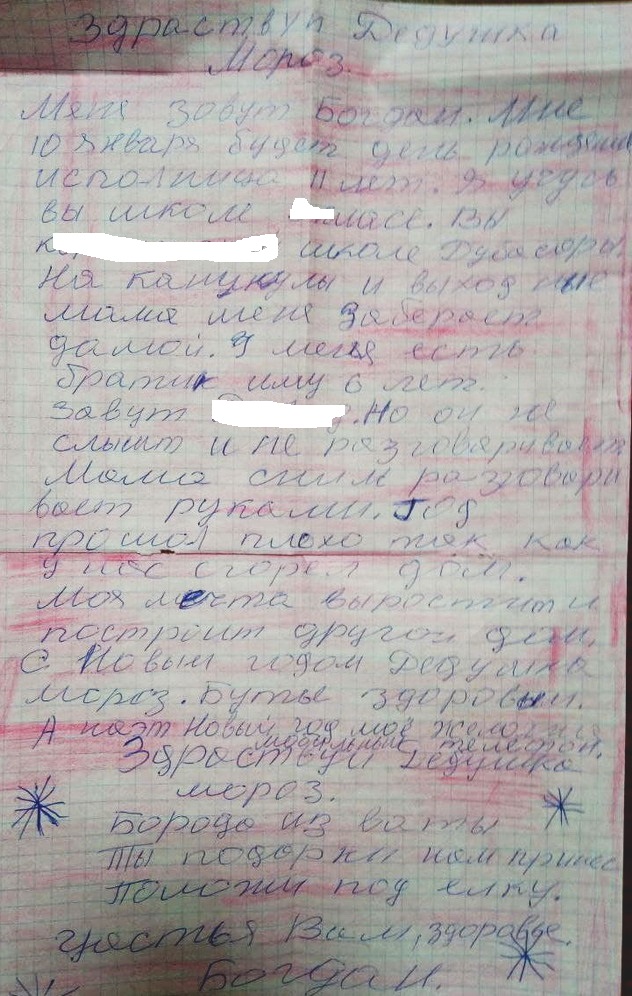 Здраствуй Дедушка
Мороз.
Меня зовут Богдан. Мне
10 января будет день рождения
исполница 11 лет. Я учусь
вы школе ласе. Вы
к школе Дубасары.
На каникулы и выходные
мама меня заберает
дамой. У меня есть
братик иму 6 лет.
Завут . Но он не
слышт и не разговаривает
Мама сним разговари
вает руками. Год
прошол плохо так как
у нас сгорел дом.
Моя мечта выростит и
построит другой дом.
С Новым годом Дедушка
мороз. Буты здоровым.
А наэт Новый год моё желания
мобильный телефон.
Здраствуй Дедушка
мороз.
Борода из ваты
Ты подарки нам принес
Положи под елку.
щастья Вам, здоровье.
Богдан.